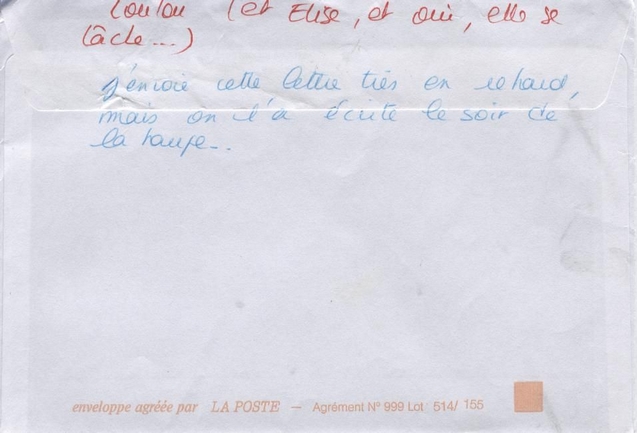 Loulou (et Elise, et oui, elle se
lâche...)
j'envoie cette lettre très en retard,
mais on l'a écrite le soir de
la
enveloppe agréée par LA POSTE – Agrément N° 999 Lot 514/ 155